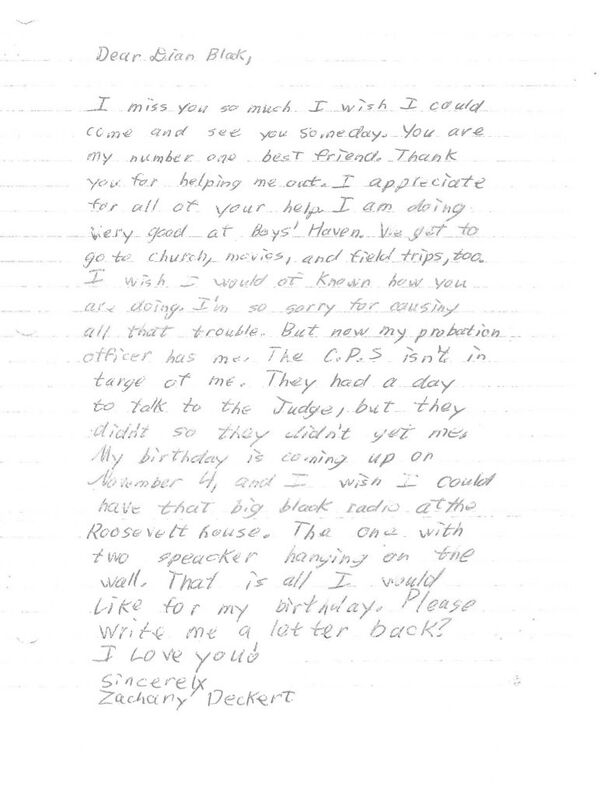 Dear Dian Blak,
I miss you so much I wish I could
come and see you someday. You are
my number one best friend. Thank
you for helping me out. I appreciate
for all of your help. I am doing
very good at Boys' Haven. We get to
go to church, movies, and field trips, too.
I wish I would of known how you
are doing. I'm so sorry for causing
all that trouble. But now my probation
officer has me. The C.P.S isn't in
targe of me. They had a day
to talk to the Judge, but they
didn't so they didn't get me.
My birthday is coming up on
November 4, and I wish I could
have that big black radio at the
Roosevelt house. The one with
two speacker hanging on the
wall. That is all I would
Like for my birthday. Please
write me a latter back?
I Love you!
Sincerely
Zachany Deckert